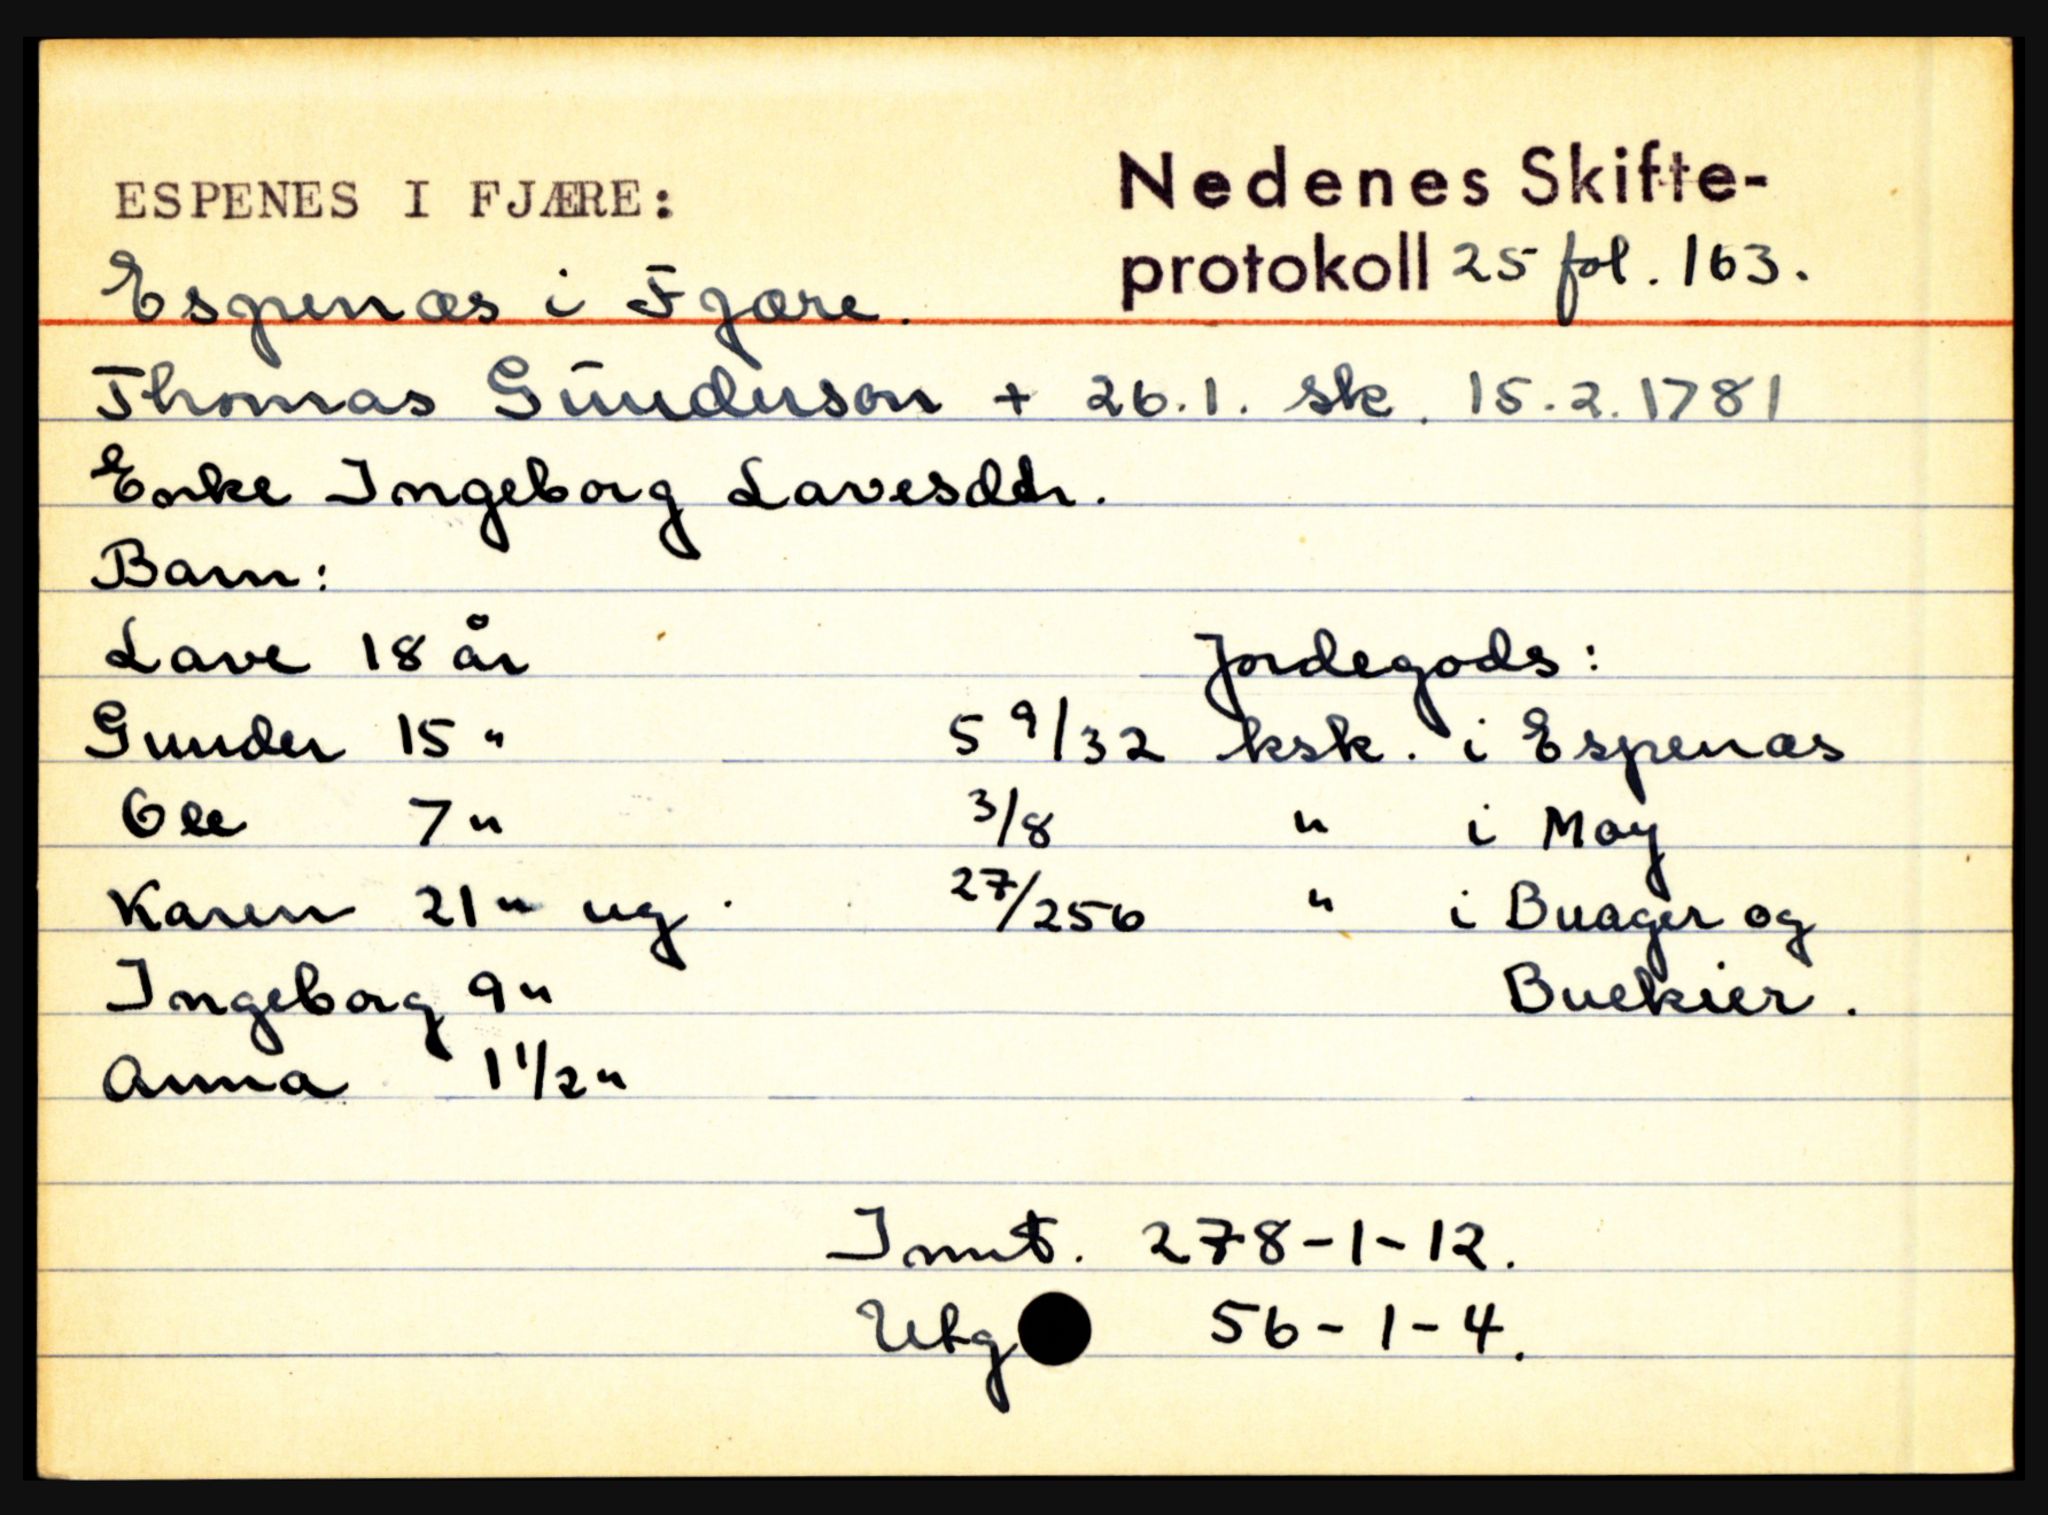 ESPENES I FJÆRE:
Nedenes Skifte-
protokoll 25 fol. 163.
Espenæs i Fjære.
Thomas Gunderson + 26.1. sk. 15.2.1781
Enke Ingeborg Lavesdtr.
Barn:
Lave 18 år
Gunder 15 "
Ole 7 "
Karen 21 " ug.
Ingeborg 9 "
Anna 1 1/2 "
Jordegods:
5 9/32 ksk. i Espenæs
3/8 " i Moy
27/256 " i Buager og
Buekier.
Innt. 278-1-12.
Utg 56-1-4.